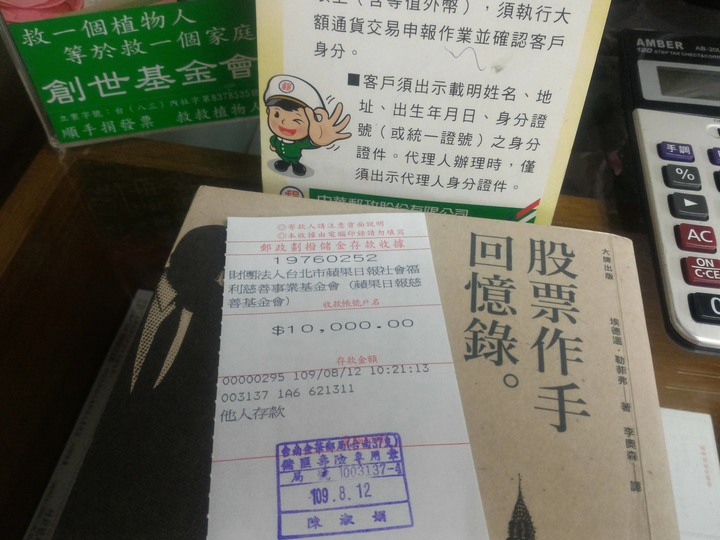 救一個植物人
等於救一個家庭
創世基金會
順手捐發票 救救植物人
(含等值外幣),須執行大
額通貨交易申報作業並確認客戶
身分。
■客戶須出示載明姓名、地
址、出生年月日、身分證
號(或統一證號)之身分
證件。代理人辦理時,僅
須出示代理人身分證件。
中華郵政股份有限公司
AMBER
手調
%
AC
ON
C·CE
0
◎寄款人請注意背面說明
◎本收據由電腦印錄請勿填寫
郵政劃撥儲金存款收據
19760252
財團法人台北市蘋果日報社會福
利慈善事業基金會(蘋果日報慈
善基金會)
收款帳號戶名
$10,000.00
存款金額
00000295 109/08/12 10:21:13
003137 1A6 621311
他人存款
局號 1003137-4
109.8.12
陳淑娟
大牌出版
股票作手
回憶錄。
埃德溫·勒菲弗 著
李奧森 譯